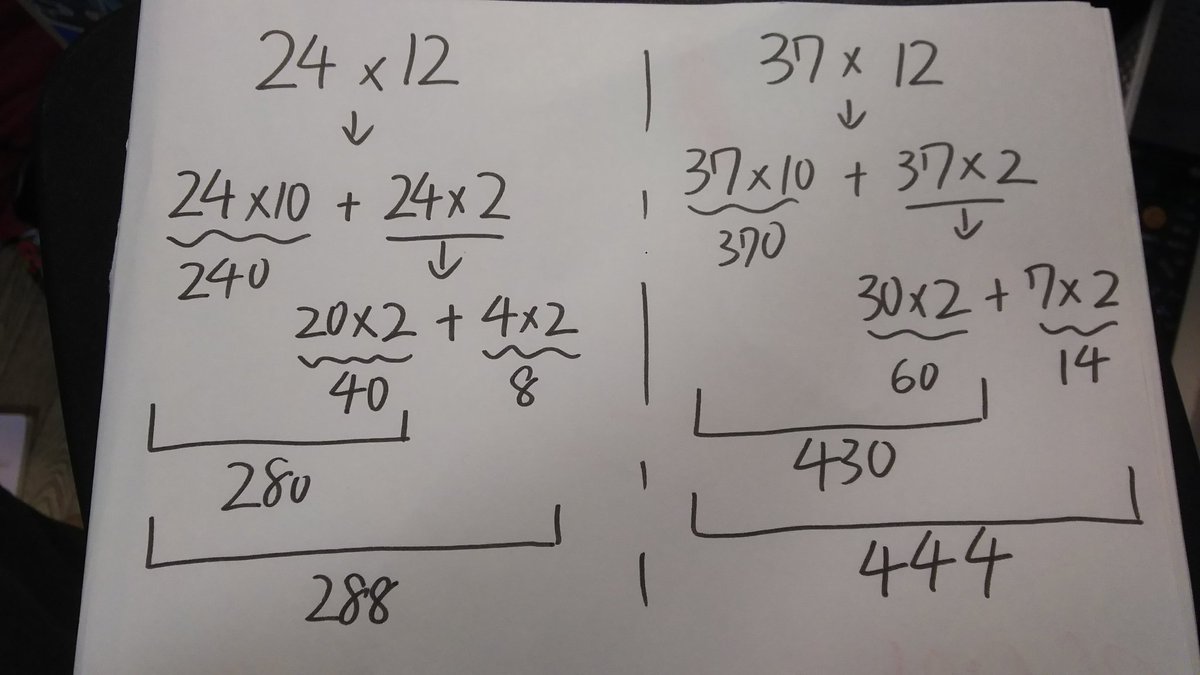 24 × 12
↓
24×10 + 24×2
240
↓
20×2 + 4×2
40
8
280
288
37 × 12
↓
37×10 + 37×2
370
↓
30×2 + 7×2
60
14
430
444